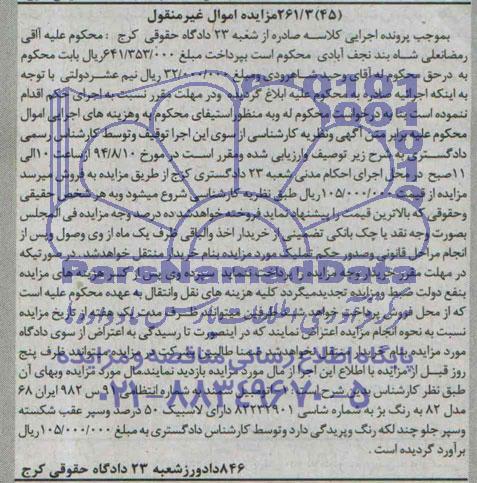 (۴۵) ۲۶۱/۳مزایده اموال غیرمنقول
بموجب پرونده اجرایی کلاسه صادره از شعبه ۲۳ دادگاه حقوقی کرج : محکوم علیه آقای
رمضانعلی شاه بند نجف آبادی محکوم است بپرداخت مبلغ ۶۴۱/۳۵۳/۰۰۰ریال بابت محکوم
به درحق محکوم له آقای وحید شاهرودی ومبلغ ۳۲/۰۰۰/۰۰۰ ریال نیم عشردولتی با توجه
به اینکه اجرائیه به محکوم علیه ابلاغ گردیده ودر مهلت مقرر نسبت به اجرای حکم اقدام
ننموده است بنا به درخواست محکوم له وبه منظور استیفای محکوم به وهزینه های اجرایی اموال
محکوم علیه برابر متن آگهی ونظریه کارشناسی از سوی این اجرا توقیف وتوسط کارشناس رسمی
دادگستری به شرح زیر توصیف وارزیابی شده ومقرر است در مورخ ۹۴/۸/۱۰ ازساعت ۱۰الی
۱۱صبح در محل اجرای احکام مدنی شعبه ۲۳ دادگستری کرج از طریق مزایده به فروش میرسد
مزایده از قیمت ۱۰۵/۰۰۰/۰۰۰ریال طبق نظریه کارشناسی شروع میشود وبه هر شخص حقیقی
وحقوقی که بالاترین قیمت را پیشنهاد نماید فروخته خواهدشد ده درصد وجه مزایده فی المجلس
بصورت وجه نقد یا چک بانکی تضمینی از خریدار اخذ والباقی ظرف یک ماه از وی وصول وپس از
انجام مراحل قانونی وصدور حکم تملیک مورد مزایده بنام خریدار منتقل خواهدشد.در صورتیکه
در مهلت مقرر خریدار وجه مزایده را پرداخت ننماید سپرده وی پس از کسر هزینه های مزایده
بنفع دولت ضبط ومزایده تجدیدمیگردد کلیه هزینه های نقل وانتقال به عهده محکوم علیه است
که از محل فروش پرداخت خواهد شد طرفین میتوانند ظرف مدت یک هفته از تاریخ مزایده
نسبت به نحوه انجام مزایده اعتراض نمایند که در اینصورت تا رسیدگی به اعتراض از سوی دادگاه
مورد مزایده بنام خریدار منتقل نخواهدشد ضمنا طالبین شرکت در مزایده میتوانند ظرف پنج
روز قبل از مزایده با اطلاع این اجرا از مال مورد مزایده بازدید نمایند.مال مورد مزایده وبهای آن
طبق نظر کارشناس بدین شرح است: سمند به شماره انتظامی س ۹۸۲ ایران ۶۸
مدل ۸۲ به رنگ بژ به شماره شاسی ۸۲۲۳۲۹۰۱ دارای لاستیک ۵۰ درصد وسپر عقب شکسته
وسپر جلو چند لکه رنگ وپریدگی دارد وتوسط کارشناس دادگستری به مبلغ ۱۰۵/۰۰۰/۰۰۰ریال
برآورد گردیده است .
۸۴۶دادورزشعبه ۲۳ دادگاه حقوقی کرج
ParsNamadData
پایگاه اطلاع رسانی مناقصه و مزایده
۰۲۱-۸۸۳۴۹۶۷۰-۵